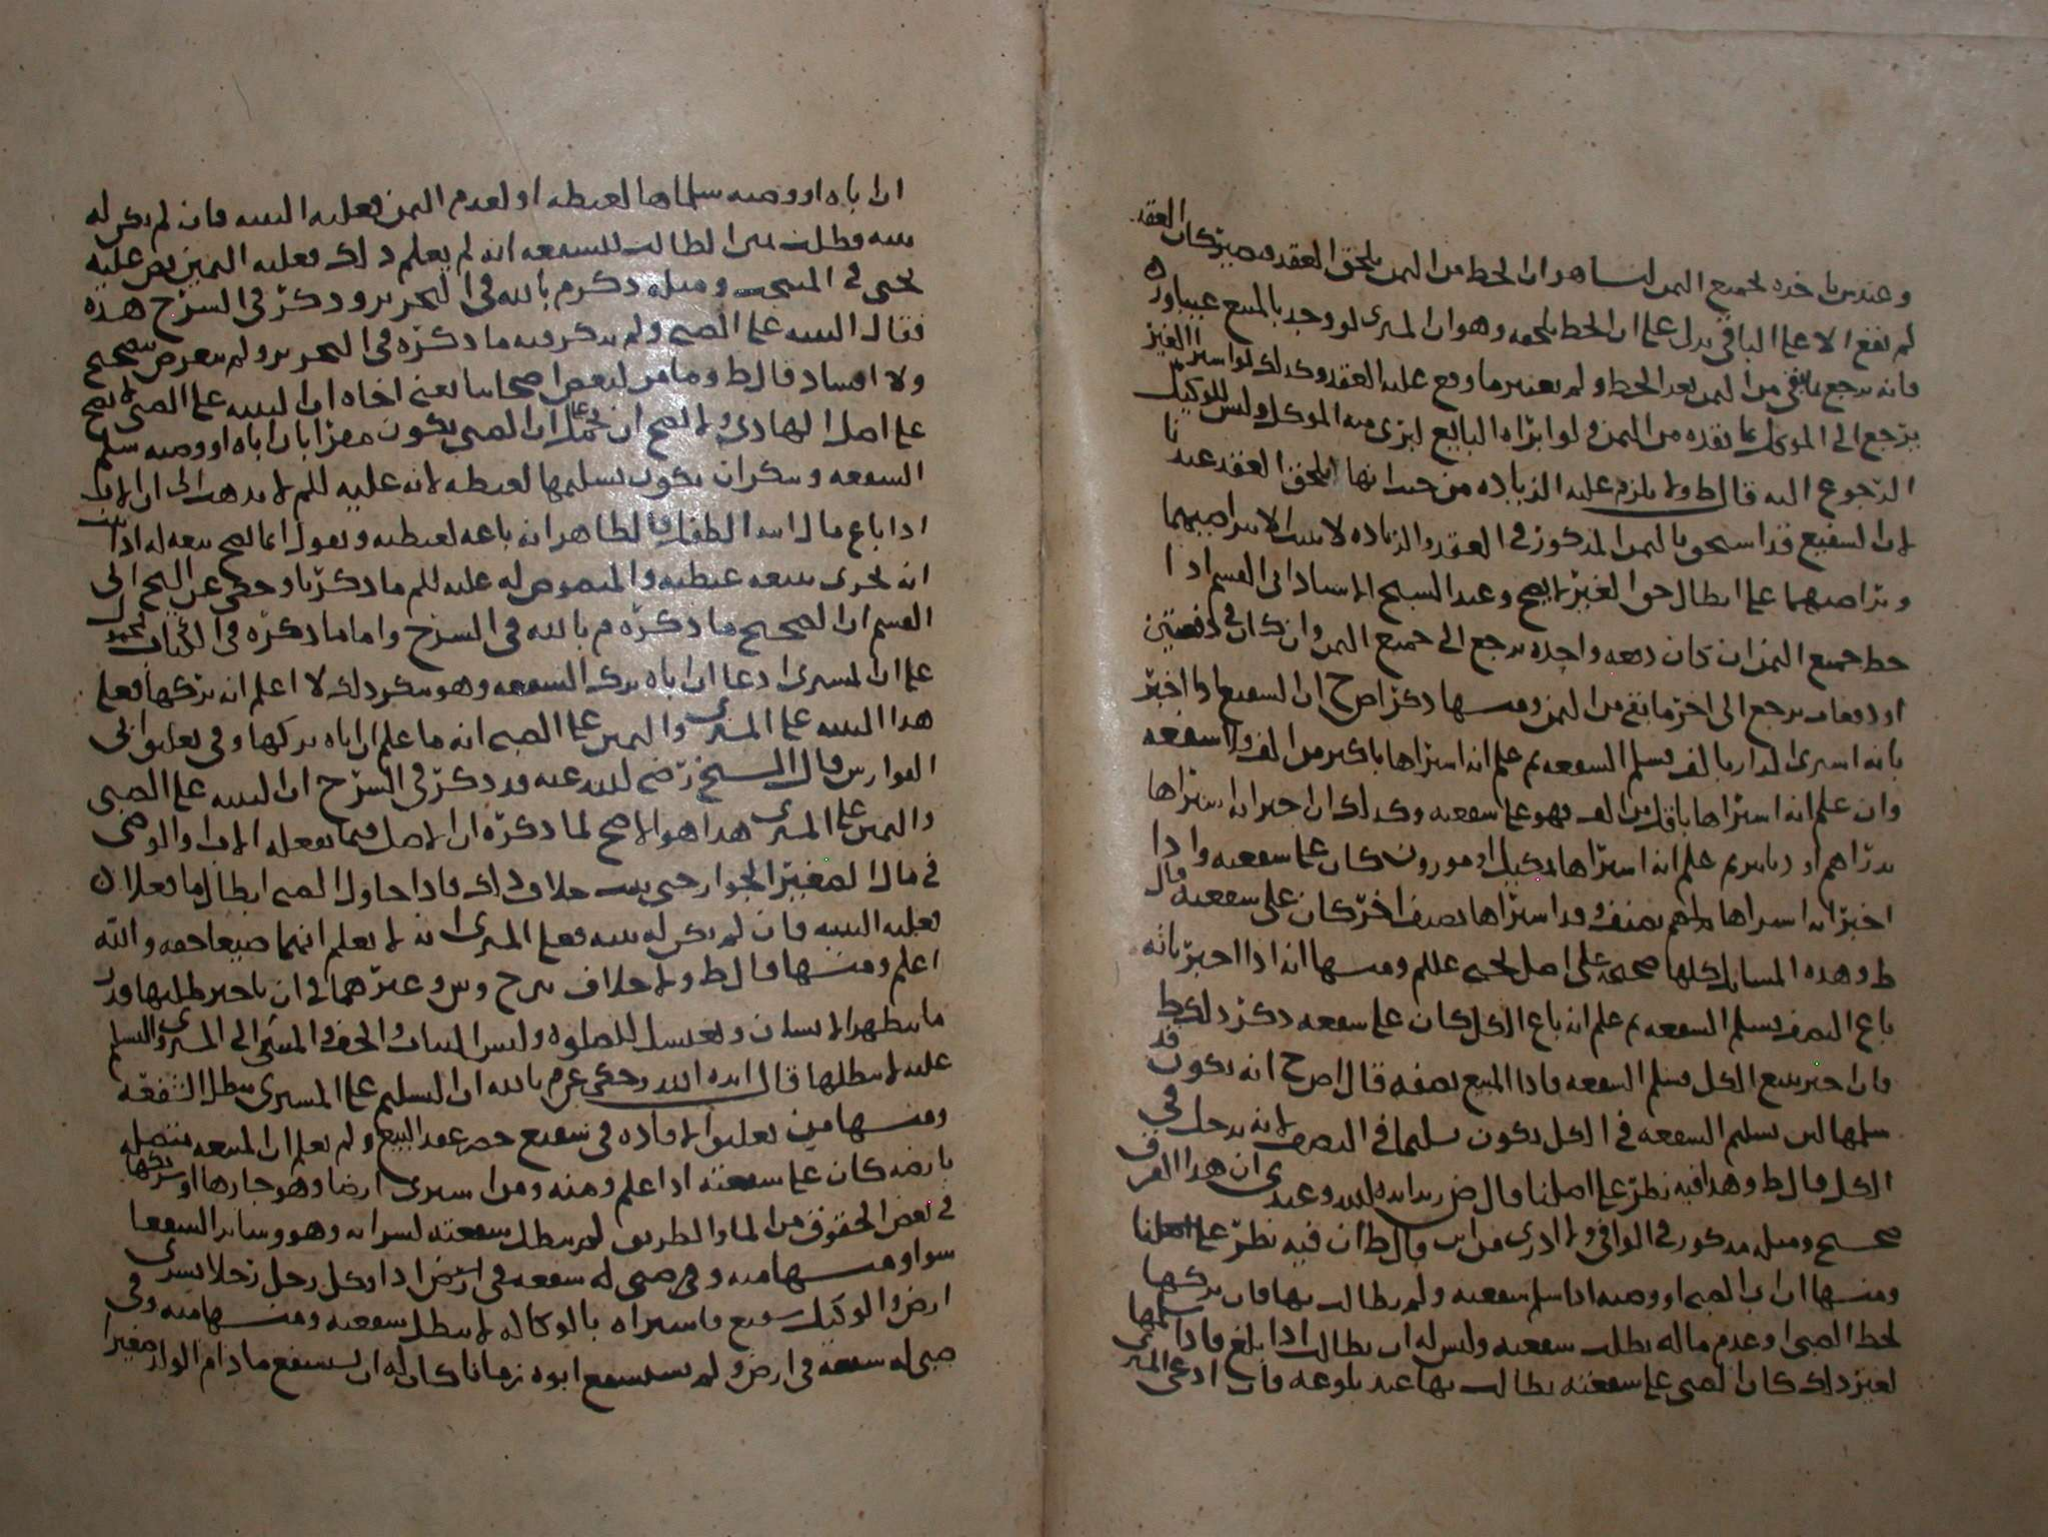 وعند س ياخذه بجميع الثمن لنا هو ان الحط من الثمن يلحق العقد فيصير كان العقد
لم يقع الا على الباقي يدل على ان الحط يلحقه وهو ان المشتري لو وجد بالمبيع عيبا ورده
فانه يرجع بما بقي من الثمن بعد الحط ولم يعتبر ما وقع عليه العقد وكذلك لو اشترا الغير
يرجع الى الموكل بما نقده من الثمن ولو ابراه البايع ابرى منه الموكل وليس للوكيل
الرجوع اليه قال ط ولا يلزم عليه الزياده من حيث انها تلحق العقد عندنا
لان الشفيع قد استحق بالثمن المذكور في العقد والزياده لا تثبت الا بتراضيهما
وتراضيهما على ابطال حق الغير لا يصح وعند الشيخ الاستاذ ابي القسم اذا
حط جميع الثمن ان كان دفعه واحده يرجع الى جميع الثمن وان كان في دفعتين
او دفعات يرجع الى اخر ما بقي من الثمن ومنها ذكر اص ح ان الشفيع اذا اخبر
بانه اشترى الدار بالف فسلم الشفعه ثم علم انه اشتراها باكثر من الف فلا شفعه
وان علم انه اشتراها باقل من الف فهو على شفعته وكذلك ان اخبر انه اشتراها
بدراهم او دنانير ثم علم انه اشتراها بمكيل او موزون كان على شفعته واذا
اخبر انه اشتراها بصنف وقد اشتراها بصنف اخر كان على شفعته قال
ط وهذه المسائل كلها صحيحه على اصل يحيى عللم ومنها انه اذا اخبر بانه
باع النصف فسلم الشفعه ثم علم انه باع الكل كان على شفعته ذكر ذلك ط
فان اخبر ببيع الكل فسلم الشفعه فاذا المبيع نصفه قال اص ح انه يكون قد
سلمها لان تسليم الشفعه في الكل يكون تسليما في النصف لانه يدخل في
الكل قال ط وهذا فيه نظر على اصلنا قال ض زيد ايده الله وعندي ان هذا الفرق
صحيح ومثله مذكور في الوافي ولا ادري من اين قال ط ان فيه نظر على اصلنا
ومنها ان اب الصبي او وصيه اذا سلم شفعته ولم يطالب بها فان تركها
لحظ الصبي او عدم ماله بطلت شفعته وليس له ان يطالب اذا بلغ فاذا سلمها
لغير ذلك كان الصبي على شفعته يطالب بها عند بلوغه فان ادعى المشتري
ان اباه او وصيه سلماها لغبطه او لعدم الثمن فعليه البينه فان لم يكن له
بينه وطلب يمين الطالب للشفعه انه لم يعلم ذلك فعليه اليمين نص عليه
يحيى في المنتخب ومثله ذكر م بالله في التحرير وذكر في الشرح هذه
فقال البينه على الصبي ولم يذكر فيه ما ذكره في التحرير ولم يتعرض لتصحيح
ولا افساد قال ط وما مر لبعض اصحابنا يعني اخاه ان البينه على الصبي لا يصح
على اصل الهادي ولا يصح ان يحمل على ان الصبي يكون مقرا بان اباه او وصيه سلم
الشفعه وينكر ان يكون تسليمها لغبطه لانه عليه للم لا يذهب الى ان الاب
اذا باع مال ابنه الطفل فالظاهر انه باعه لغبطته ويقول انما يصح بيعه له اذا ثبت
انه تحرى ببيعه غبطته والمنصوص له عليه للم ما ذكرنا وحكى عن الشيخ ابي
القسم ان الصحيح ما ذكره م بالله في الشرح واما ما ذكره في الكتاب فيحمل
على ان المشتري ادعا ان اباه ترك الشفعه وهو ينكر ذلك لا اعلم انه تركها فعلى
هذا البينه على المشتري واليمين على الصبي انه ما علم ان اباه تركها وفي تعليق ابي
الفوارس قال الشيخ رضي الله عنه قد ذكر في الشرح ان البينه على الصبي
واليمين على المشتري هذا هو الاصح لما ذكره ان الاصل فيما يفعله الاب والوصي
في مال الصغير الجواز حتى يثبت خلاف ذلك فاذا حاول الصبي ابطال ما فعلا ان
فعليه البينه فان لم يكن له بينه فعلى المشتري انه لا يعلم انهما ضيعا حقه والله
اعلم ومنها قال ط ولا خلاف بين ح وش وغيرهما في ان تاخير طلبها قدر
ما يتطهر الانسان ويغتسل للصلوه ولبس الثياب والخف والمشي الى المشتري والتسليم
عليه لا يبطلها قال ايده الله وحكى عن م بالله ان التسليم على المشتري يبطل الشفعه
ومنها من تعليق الافاده في شفيع حضر عقد البيع ولم يعلم ان المبيعه متصله
بارضه كان على شفعته اذا علم ومنه ومن اشترى ارضا وهو جارها او شريكها
في بعض الحقوق من الماء والطريق لم يبطل شفعته لشرائه وهو وسائر الشفعا
سوا ومنها منه وفي صبي له شفعه في ارض اذا وكل رجل رجلا بشرى
ارض والوكيل شفيع فاشتراه بالوكاله لا يبطل شفعته ومنها منه وفي
صبي له شفعه في ارض ولم يستشفع ابوه زمانا كان له ان يستشفع ما دام الولد صغيرا